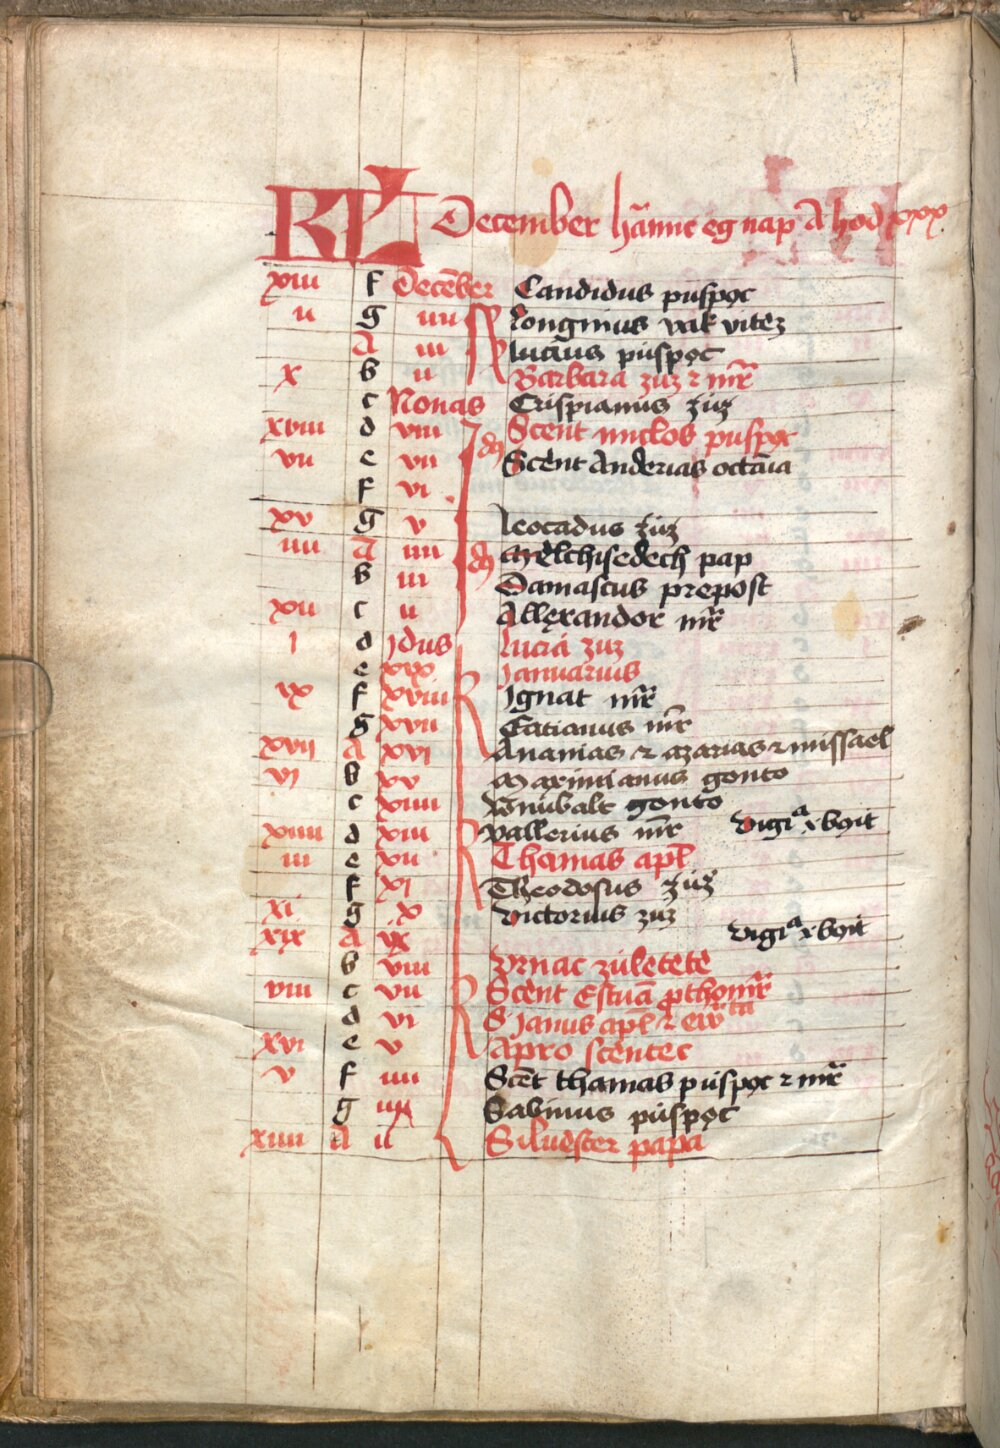 KL December hãmc eg nap A hod xxx
xiii f Decēber Candidus püspọc
ii g iiii Longinus vak vitėz
A iii lucius püspọc
x b ii Barbara zűz ⁊ mr̄
c Nonas Crispianus zűz
xviii d viii Scent miclos püspọc
vii e vii Scent Anderias octāua
f vi
xv g v leocadus zűz
iiii A iiii Mėlchisedech pap
b iii Damascus prepost
xii c ii Allẹxandor mr̄
i d Jdus lucia zűz
e xix Januarius
ix f xviii Ignat mr̄
g xvii Catianus mr̄
xvii A xvi Ananias ⁊ azarias ⁊ missael
vi b xv Maximianus gonto
c xiiii Wnibalt gonto
xiiii d xiii vallerius mr̄ vigia xboit
iii e xii Thamas apl̄
f xi Theodosus zűz
xi g x victorius zűz
xix A ix vigia xboit
b viii vrnac zületėtė
viii c vii Scėnt Estuā ꝓthomr̄
d vi S Janus apl̄ ⁊ eiw̄ta
xvi e v Apro scėntec
v f iiii Scēt thamas püspọc ⁊ mr̄
g iii Sabinus püspọc
xiiii A ii Siluėster papa